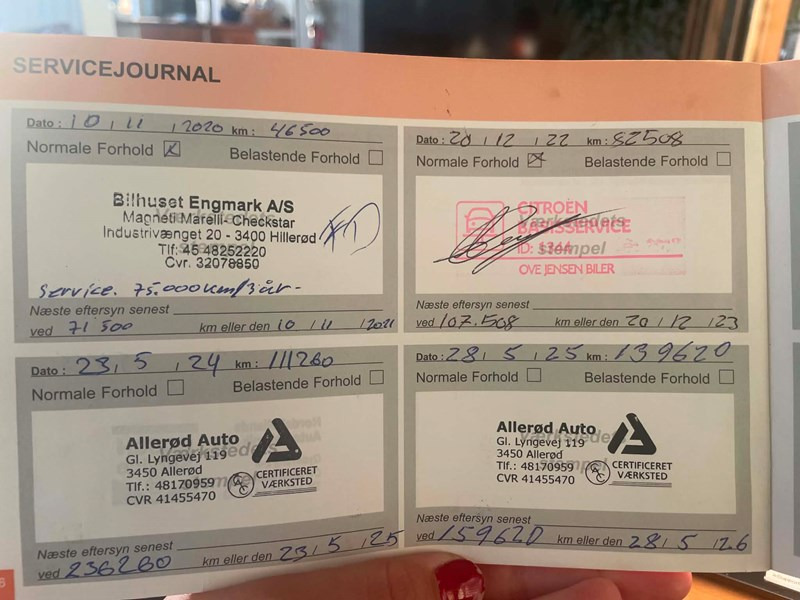 SERVICEJOURNAL
Dato: 10, 11, 2020 km: 46500
Normale Forhold ☒ Belastende Forhold ☐
Bilhuset Engmark A/S
Magneti Marelli-Checkstar
Industrivænget 20 - 3400 Hillerød
Tlf: 45 48252220
Cvr. 32078850
Service. 75.000 km/3 år -
Næste eftersyn senest
ved 71500 km eller den 10, 11, 2021
Dato: 20, 12, 22 km: 82508
Normale Forhold ☒ Belastende Forhold ☐
CITROËN
Værkstedets
BASISSERVICE
ID: stempel
OVE JENSEN BILER
Næste eftersyn senest
ved 107.508 km eller den 20, 12, 23
Dato: 23, 5, 24 km: 111260
Normale Forhold ☐ Belastende Forhold ☐
Allerød Auto
Gl. Lyngevej 119
3450 Allerød
Tlf.: 48170959
CVR 41455470
CERTIFICERET
VÆRKSTED
Næste eftersyn senest
ved 236260 km eller den 23, 5, 25
Dato: 28, 5, 25 km: 139620
Normale Forhold ☐ Belastende Forhold ☐
Allerød Auto
Gl. Lyngevej 119
3450 Allerød
Tlf.: 48170959
CVR 41455470
CERTIFICERET
VÆRKSTED
Næste eftersyn senest
ved 159620 km eller den 28, 5, 26